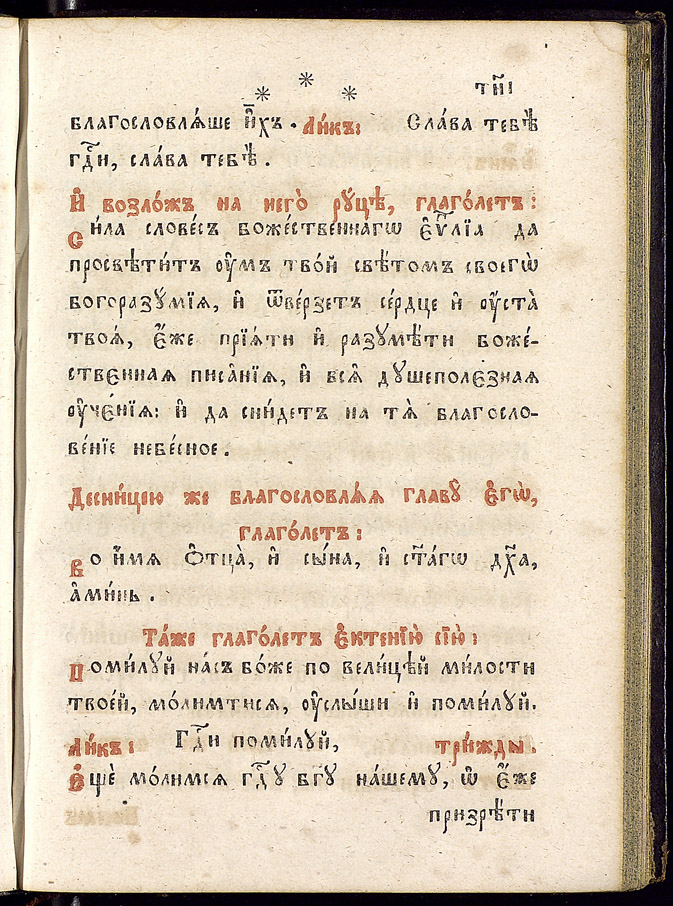 тн҃і
* * *
благословлѧ́ше и҆̀хъ . Ли́къ: Сла́ва тебѣ̀
гдⷭ҇и, сла́ва тебѣ̀ .
И҆ возло́жъ на него̀ рꙋ́цѣ, глаго́летъ :
Си́ла слове́съ боже́ственнагѡ є҆ѵⷢ҇лїа да
просвѣти́тъ оу҆́мъ тво́й свѣ́томъ своегѡ̀
богоразꙋ́мїѧ, и҆ ѿве́рзетъ се́рдце и҆ оу҆ста̀
твоѧ̀, є҆́же прїѧ́ти и҆ разꙋмѣ́ти боже́-
ствєнная писа̑нїѧ, и҆ всѧ̑ дꙋшеполє́зная
оу҆чє́нїѧ: и҆ да сни́детъ на тѧ̀ благосло-
ве́нїе небе́сное .
Десни́цею же благословлѧ́ѧ главꙋ̀ є҆гѡ̀,
глаго́летъ :
Во и҆́мѧ ѻ҆тца̀, и҆ сы́на, и҆ ст҃а́гѡ дх҃а,
а҆ми́нь .
Та́же глаго́летъ є҆ктенїю̀ сїю̀ :
Поми́лꙋй на́съ бо́же по вели́цѣй ми́лости
твое́й, мо́лимтисѧ, оу҆слы́ши и҆ поми́лꙋй.
Ли́къ: Гдⷭ҇и поми́лꙋй, три́жды .
Е҆щѐ мо́лимсѧ гдⷭ҇ꙋ бг҃ꙋ на́шемꙋ, ѡ҆ є҆́же
призрѣ́ти